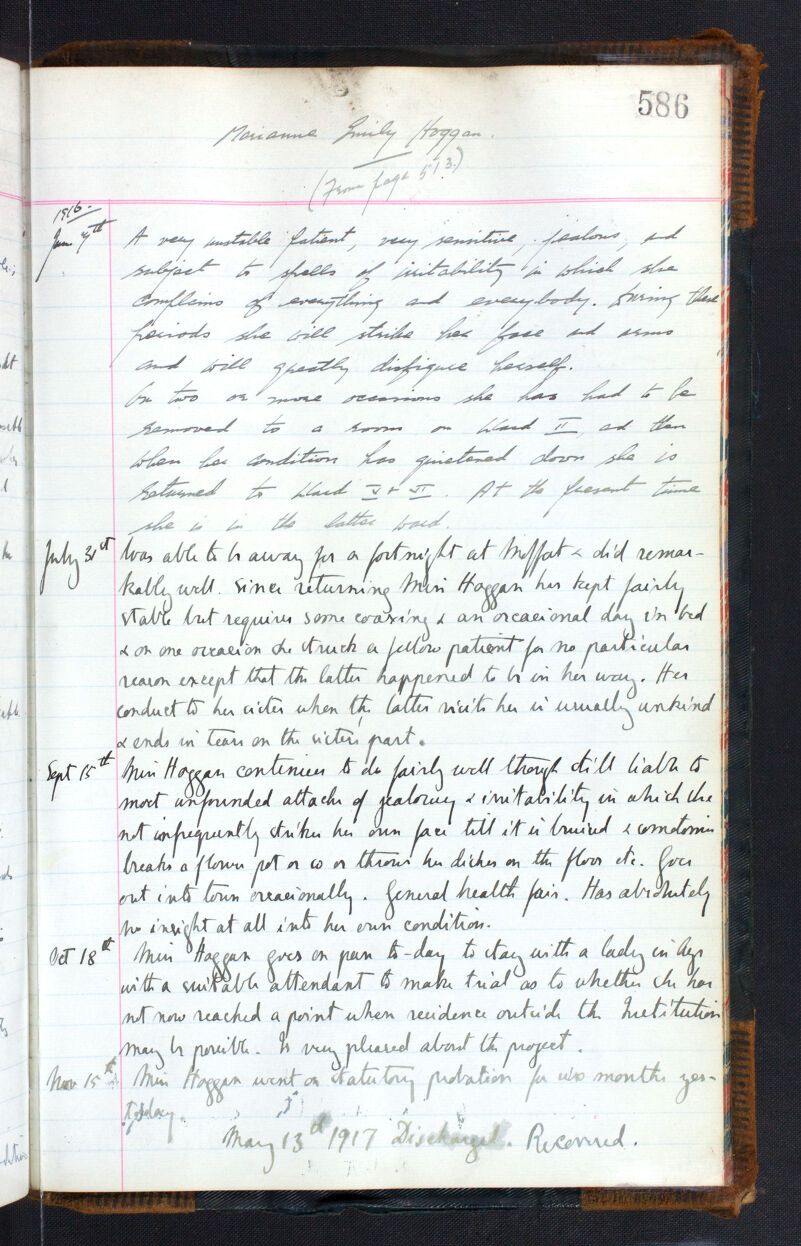 586
Marianne Emily Hoggan.
(From page 573.)
1916.
Jan 7th A very unstable patient, very sensitive, jealous, and
subject to spells of irritability in which she
complains of everything and everybody. During these
periods she will strike her face and arms
and will greatly disfigure herself.
On two or more occasions she has had to be
removed to a room on Ward II, and then
when her condition has quietened down she is
returned to Ward V + VI. At the present time
she is in the latter ward.
July 31st Was able to be away for a fortnight at Moffat & did remar-
kably well. Since returning Miss Hoggan has kept fairly
stable but requires some coaxing & an occasional day in bed
& on one occasion she struck a fellow patient for no particular
reason except that the latter happened to be in her way. Her
conduct to her sister when the latter visits her is usually unkind
& ends in tears on the sister's part.
Sept 15th Miss Hoggan continues to do fairly well though still liable to
most unfounded attacks of jealousy & irritability in which she
not infrequently strikes her own face till it is bruised & sometimes
breaks a flower pot or so or throws her dishes on the floor etc. Goes
out into town occasionally. General health fair. Has absolutely
no insight at all into her own condition.
Oct 18th Miss Hoggan goes on pass to-day to stay with a lady in Ayr
with a suitable attendant to make trial as to whether she has
not now reached a point when residence outside the Institution
may be possible. Is very pleased about the project.
Nov 15th Miss Hoggan went on statutory probation for months yes-
terday.
May 13th 1917 Discharged. Recovered.